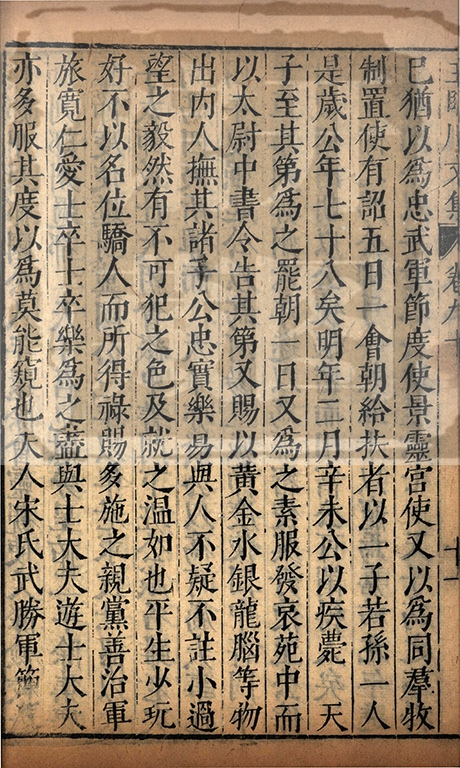 王臨川文集 卷九十 十一
已猶以爲忠武軍節度使景靈宮使又以爲同羣牧
制置使有詔五日一會朝給扶者以一子若孫一人
是歲公年七十八矣明年二月辛未公以疾薨 天
子至其第爲之罷朝一日又爲之素服發哀苑中而
以太尉中書令告其第又賜以黃金水銀龍腦等物
出内人撫其諸子公忠實樂易與人不疑不詿小過
望之毅然有不可犯之色及就之温如也平生少玩
好不以名位驕人而所得祿賜多施之親黨善治軍
旅寬仁愛士卒士卒樂爲之盡與士大夫遊士大夫
亦多服其度以爲莫能窺也夫人宋氏武勝軍節